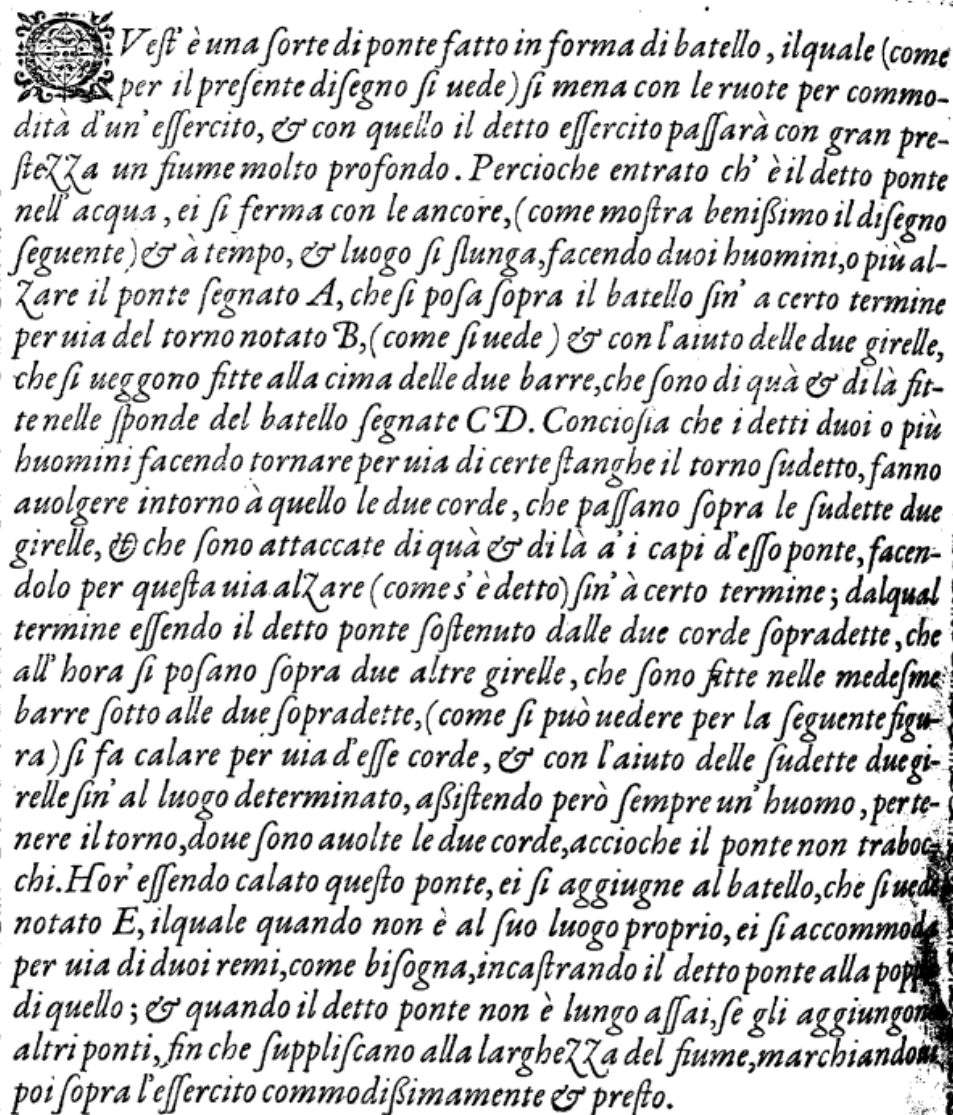 QVeſt' è una ſorte di ponte fatto in forma di batello, ilquale (come
per il preſente diſegno ſi uede) ſi mena con le ruote per commo-
dità d'un' eſſercito, & con quello il detto eſſercito paſſarà con gran pre-
ſtezza un fiume molto profondo. Percioche entrato ch' è il detto ponte
nell' acqua, ei ſi ferma con le ancore, (come moſtra benißimo il diſegno
ſeguente) & à tempo, & luogo ſi ſlunga, facendo duoi huomini, o più al-
zare il ponte ſegnato A, che ſi poſa ſopra il batello ſin' a certo termine
per uia del torno notato B, (come ſi uede ) & con l'aiuto delle due girelle,
che ſi ueggono fitte alla cima delle due barre, che ſono di quà & di là fit-
te nelle ſponde del batello ſegnate C D. Concioſia che i detti duoi o più
huomini facendo tornare per uia di certe ſtanghe il torno ſudetto, fanno
auolgere intorno à quello le due corde, che paſſano ſopra le ſudette due
girelle, & che ſono attaccate di quà & di là a' i capi d'eſſo ponte, facen-
dolo per queſta uia alzare (come s' è detto) ſin' à certo termine; dalqual
termine eſſendo il detto ponte ſoſtenuto dalle due corde ſopradette, che
all' hora ſi poſano ſopra due altre girelle, che ſono fitte nelle medeſme
barre ſotto alle due ſopradette, (come ſi può uedere per la ſeguente figu-
ra) ſi fa calare per uia d'eſſe corde, & con l'aiuto delle ſudette due gi-
relle ſin' al luogo determinato, aßiſtendo però ſempre un' huomo, per te-
nere il torno, doue ſono auolte le due corde, accioche il ponte non traboc-
chi. Hor' eſſendo calato queſto ponte, ei ſi aggiugne al batello, che ſi uede
notato E, ilquale quando non è al ſuo luogo proprio, ei ſi accommoda
per uia di duoi remi, come biſogna, incaſtrando il detto ponte alla poppa
di quello; & quando il detto ponte non è lungo aſſai, ſe gli aggiungono
altri ponti, fin che ſuppliſcano alla larghezza del fiume,
poi ſopra l'eſſercito commodißimamente & preſto.